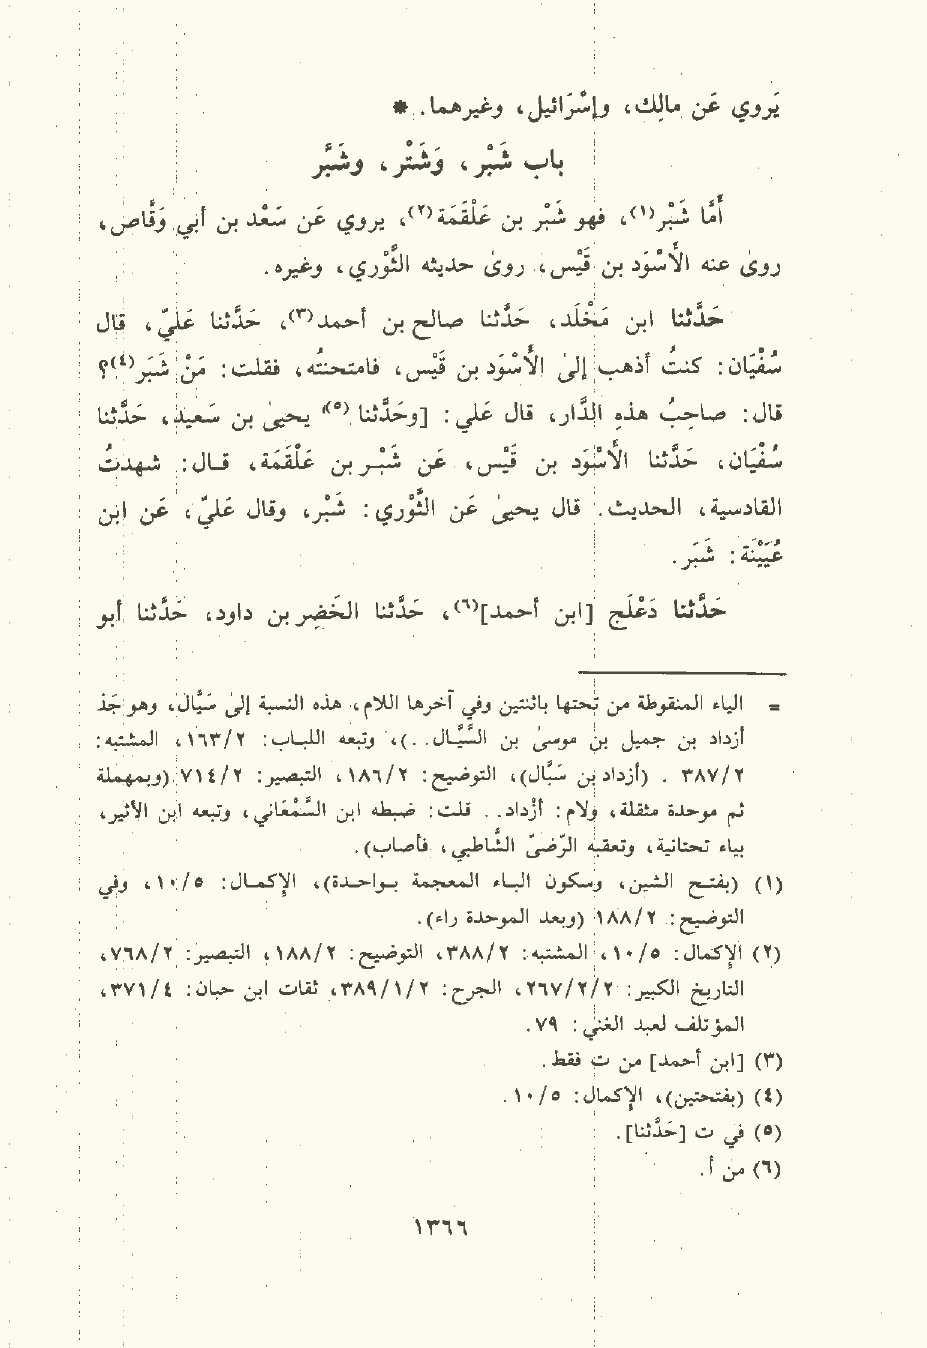 يَروي عَن مالِك، وإسْرَائيل، وغيرهما. *
باب شَبْر، وَشَتْر، وشَبَّر
أمَّا شَبْر(١)، فهو شَبْر بن عَلْقَمَة(٢)، يروي عَن سَعْد بن أبي وَقَّاص،
روىٰ عنه الأَسْوَد بن قَيْس، روىٰ حديثه الثَّوْري، وغيره.
حَدَّثنا ابن مَخْلَد، حَدَّثنا صالح بن أحمد(٣)، حَدَّثنا عَليّ، قال
سُفْيَان: كنتُ أذهب إلىٰ الأَسْوَد بن قَيْس، فامتحنتُه، فقلت: مَنْ شَبَر(٤)؟
قال: صاحِبُ هذِه الدَّار، قال عَلي: [وحَدَّثنا(٥)] يحيىٰ بن سَعيد، حَدَّثنا
سُفْيَان، حَدَّثنا الأَسْوَد بن قَيْس، عَن شَبْر بن عَلْقَمَة، قال: شهدتُ
القادسية، الحديث. قال يحيىٰ عَن الثَّوْري: شَبْر، وقال عَليّ، عَن ابن
عُيَيْنَة: شَبَر.
حَدَّثنا دَعْلَج [ابن أحمد](٦)، حَدَّثنا الخَضِر بن داود، حَدَّثنا أبو
= الياء المنقوطة من تحتها باثنتين وفي آخرها اللام، هذه النسبة إلىٰ سَيَّال، وهو جَد
أزداد بن جميل بن موسىٰ بن السَّيَّال. .)، وتبعه اللباب: ١٦٣/٢، المشتبه:
٣٨٧/٢ . (أزداد بن سَبَّال)، التوضيح: ١٨٦/٢، التبصير: ٧١٤/٢ (وبمهملة
ثم موحدة مثقلة، ولام: أزْداد. . قلت: ضبطه ابن السَّمْعَاني، وتبعه ابن الأثير،
بياء تحتانية، وتعقبه الرّضىّ الشَّاطبي، فأصاب).
(١) (بفتح الشين، وسكون الباء المعجمة بواحدة)، الإكمال: ١٠/٥، وفي
التوضيح: ١٨٨/٢ (وبعد الموحدة راء).
(٢) الإكمال: ١٠/٥، المشتبه: ٣٨٨/٢، التوضيح: ١٨٨/٢، التبصير: ٧٦٨/٢،
التاريخ الكبير: ٢٦٧/٢/٢، الجرح: ٣٨٩/١/٢، ثقات ابن حبان: ٣٧١/٤،
المؤتلف لعبد الغني: ٧٩.
(٣) [ابن أحمد] من ت فقط.
(٤) (بفتحتين)، الإكمال: ١٠/٥.
(٥) في ت [حَدَّثنا].
(٦) من أ.
١٣٦٦